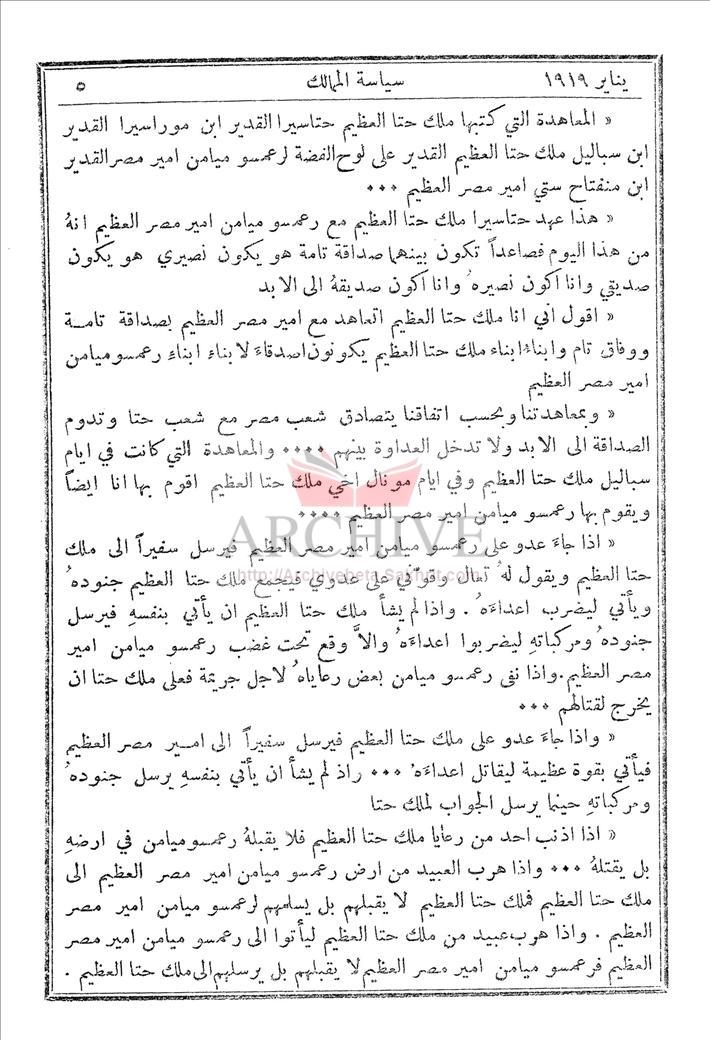 يناير ١٩١٩ سياسة الممالك ٥
« المعاهدة التي كتبها ملك حتا العظيم حتاسيرا القدير ابن موراسيرا القدير
ابن سباليل ملك حتا العظيم القدير على لوح الفضة لرعمسو ميامن امير مصر القدير
ابن منفتاح ستي امير مصر العظيم ٠٠٠
« هذا عهد حتاسيرا ملك حتا العظيم مع رعمسو ميامن امير مصر العظيم انهُ
من هذا اليوم فصاعداً تكون بينهما صداقة تامة هو يكون نصيري هو يكون
صديقي وانا اكون نصيره ُ وانا اكون صديقهُ الى الابد
« اقول اني انا ملك حتا العظيم اتعاهد مع امير مصر العظيم بصداقة تامــة
ووفاق تام وابناءُ ابناء ملك حتا العظيم يكونون اصدقاءَ لابناءِ ابناءِ رعمسوميامن
امير مصر العظيم
« وبمعاهدتنا وبحسب اتفاقنا يتصادق شعب مصر مع شعب حتا وتدوم
الصداقة الى الابد ولا تدخل العداوة بينهم ٠٠٠٠ والمعاهدة التي كانت في ايام
سباليل ملك حتا العظيم وفي ايام مونال اخي ملك حتا العظيم اقوم بها انا ايضاً
ويقوم بها رعمسو ميامن امير مصر العظيم ٠٠٠٠
« اذا جاءَ عدو على رعمسو ميامن امير مصر العظيم فيرسل سفيراً الى ملك
حتا العظيم ويقول لهُ تعال وقوّني على عدوي فيجمع ملك حتا العظيم جنودهُ
ويأتي ليضرب اعداءَهُ . واذا لم يشأ ملك حتا العظيم ان يأتي بنفسهِ فيرسل
جنودهُ ومركباتهِ ليضربوا اعداءَهُ والاَّ وقع تحت غضب رعمسو ميامن امير
مصر العظيم. واذا نفى رعمسو ميامن بعض رعاياهُ لاجل جريمة فعلى ملك حتا ان
يخرج لقتالهم ٠٠٠
« واذا جاءَ عدو على ملك حتا العظيم فيرسل سفيراً الى امــير مصر العظيم
فيأتي بقوة عظيمة ليقاتل اعداءَهُ ٠٠٠ واذ لم يشأ ان يأتي بنفسهِ يرسل جنودهُ
ومركباتهِ حينما يرسل الجواب لملك حتا
« اذا اذنب احد من رعايا ملك حتا العظيم فلا يقبلهُ رعمسوميامن في ارضهِ
بل يقتلهُ ٠٠٠ واذا هرب العبيد من ارض رعمسو ميامن امير مصر العظيم الى
ملك حتا العظيم فملك حتا العظيم لا يقبلهم بل يسلمهم لرعمسو ميامن امير مصر
العظيم . واذا هرب عبيد من ملك حتا العظيم ليأتوا الى رعمسو ميامن امير مصر
العظيم فرعمسو ميامن امير مصر العظيم لا يقبلهم بل يرسلهم الى ملك حتا العظيم .
ARCHIVE
http://Archivebeta.Sakhrit.com